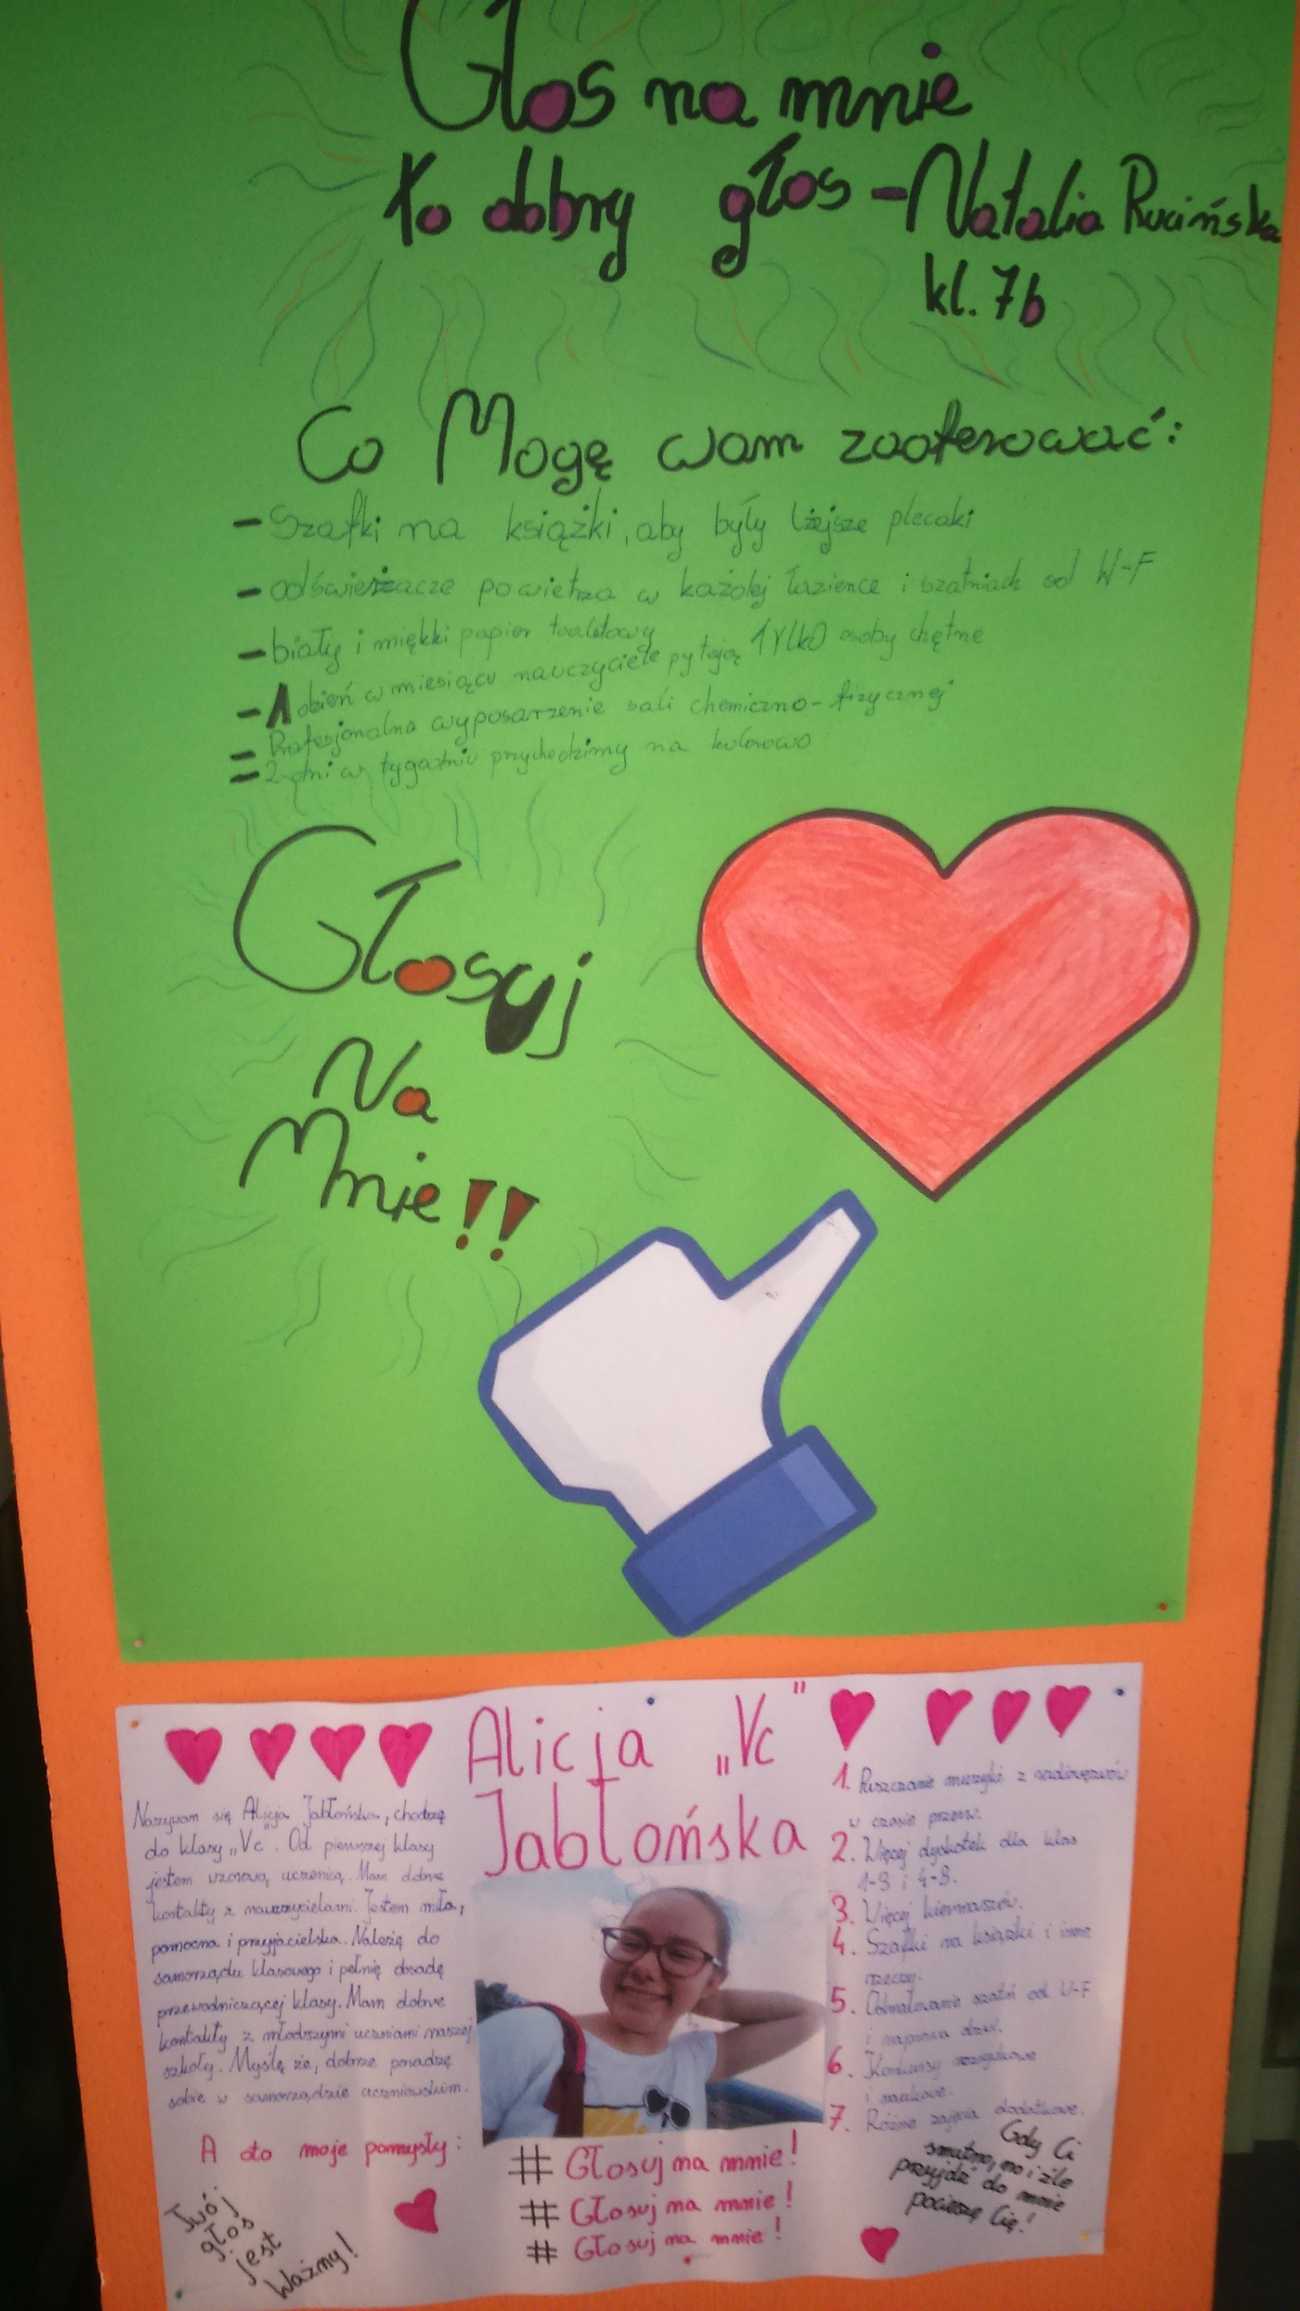 Głos na mnie
to dobry głos - Natalia Rucińska
kl. 7b
Co Mogę wam zaoferować:
- Szafki na książki, aby były lżejsze plecaki
- odświeżacze powietrza w każdej łazience i szatniach od W-F
- biały i miękki papier toaletowy
- 1 dzień w miesiącu nauczyciele pytają TYLKO osoby chętne
- Profesjonalne wyposarzenie sali chemiczno-fizycznej
- 2 dni w tygodniu przychodzimy na kolorowo
Głosuj
Na
Mnie!!
Alicja „Vc"
Jabłońska
Nazywam się Alicja Jabłońska, chodzę
do klasy „Vc". Od pierwszej klasy
jestem wzorową uczenicą. Mam dobre
kontakty z nauczycielami. Jestem miła,
pomocna i przyjacielska. Należę do
samorządu klasowego i pełnię
przewodniczącej klasy. Mam dobre
kontakty z młodszymi uczniami naszej
szkoły. Myślę że, dobrze poradzę
sobie w samorządzie uczniowskim.
A oto moje pomysły:
Twój
głos
jest
Ważny!
# Głosuj na mnie!
# Głosuj na mnie!
# Głosuj na mnie!
1. Puszczanie muzyki z radiowęzłów
w czasie przerw.
2. Więcej dyskotek dla klas
1-3 i 4-8.
3. Więcej kiermaszów.
4. Szafki na książki i inne
rzeczy.
5. Odmalowanie szatni od W-F
i naprawa drzwi.
6. Konkursy
i naukowe.
7. Różne zajęcia dodatkowe.
Gdy Ci
smutno, no i źle
przyjdź do mnie
pocieszę Cię!